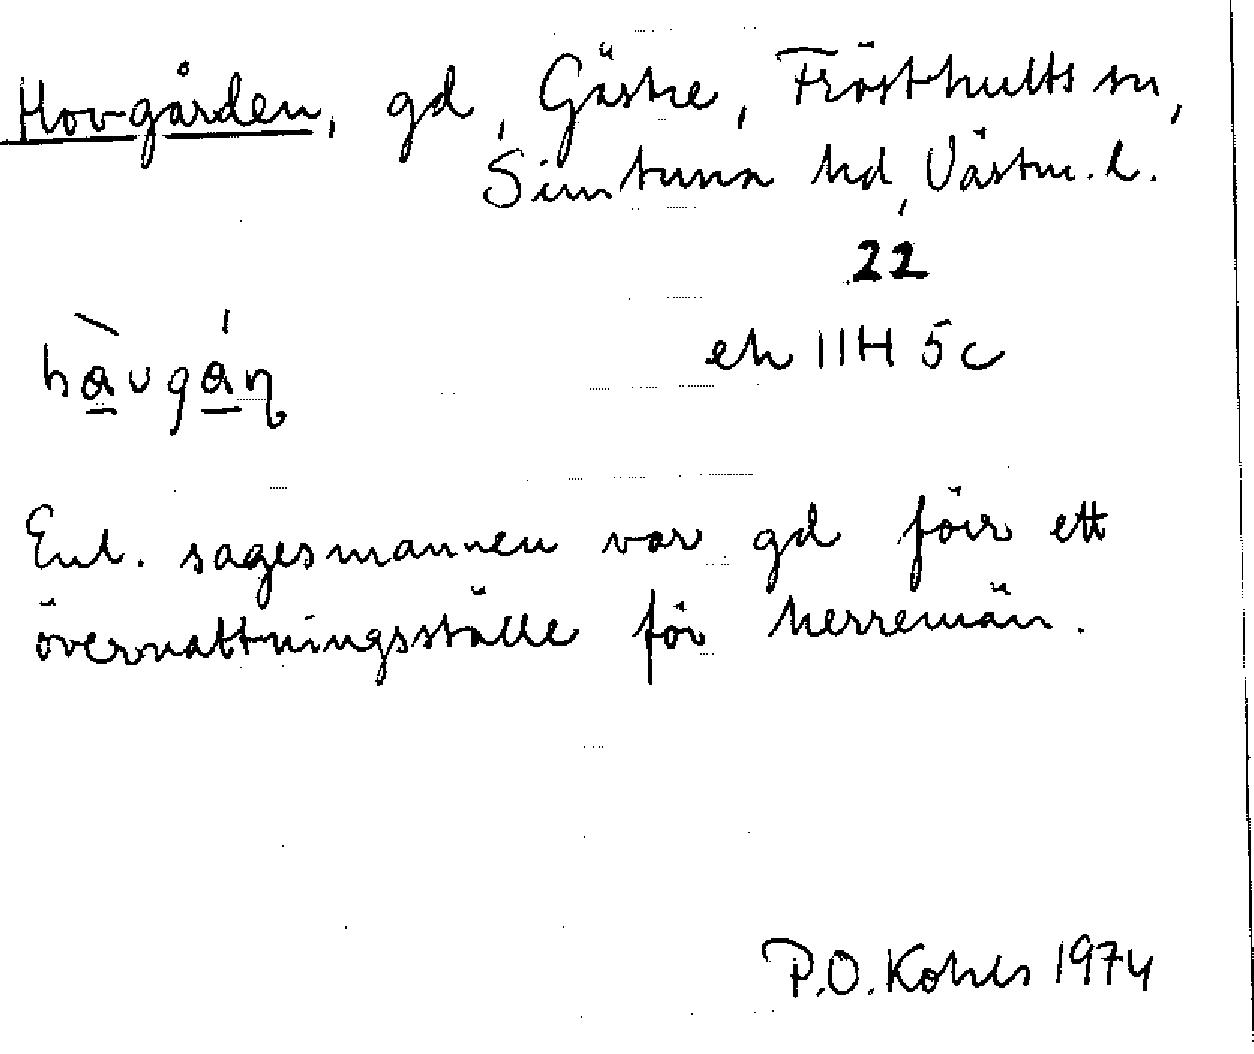 Hovgården, gd, Gästre, Frösthults sn,
Simtuna hd, Västm. l.
22
hàvgán̩ ek 11H 5c
Enl. sagesmannen var gd förr ett
övernattningsställe för herremän.
P.O. Kohls 1974